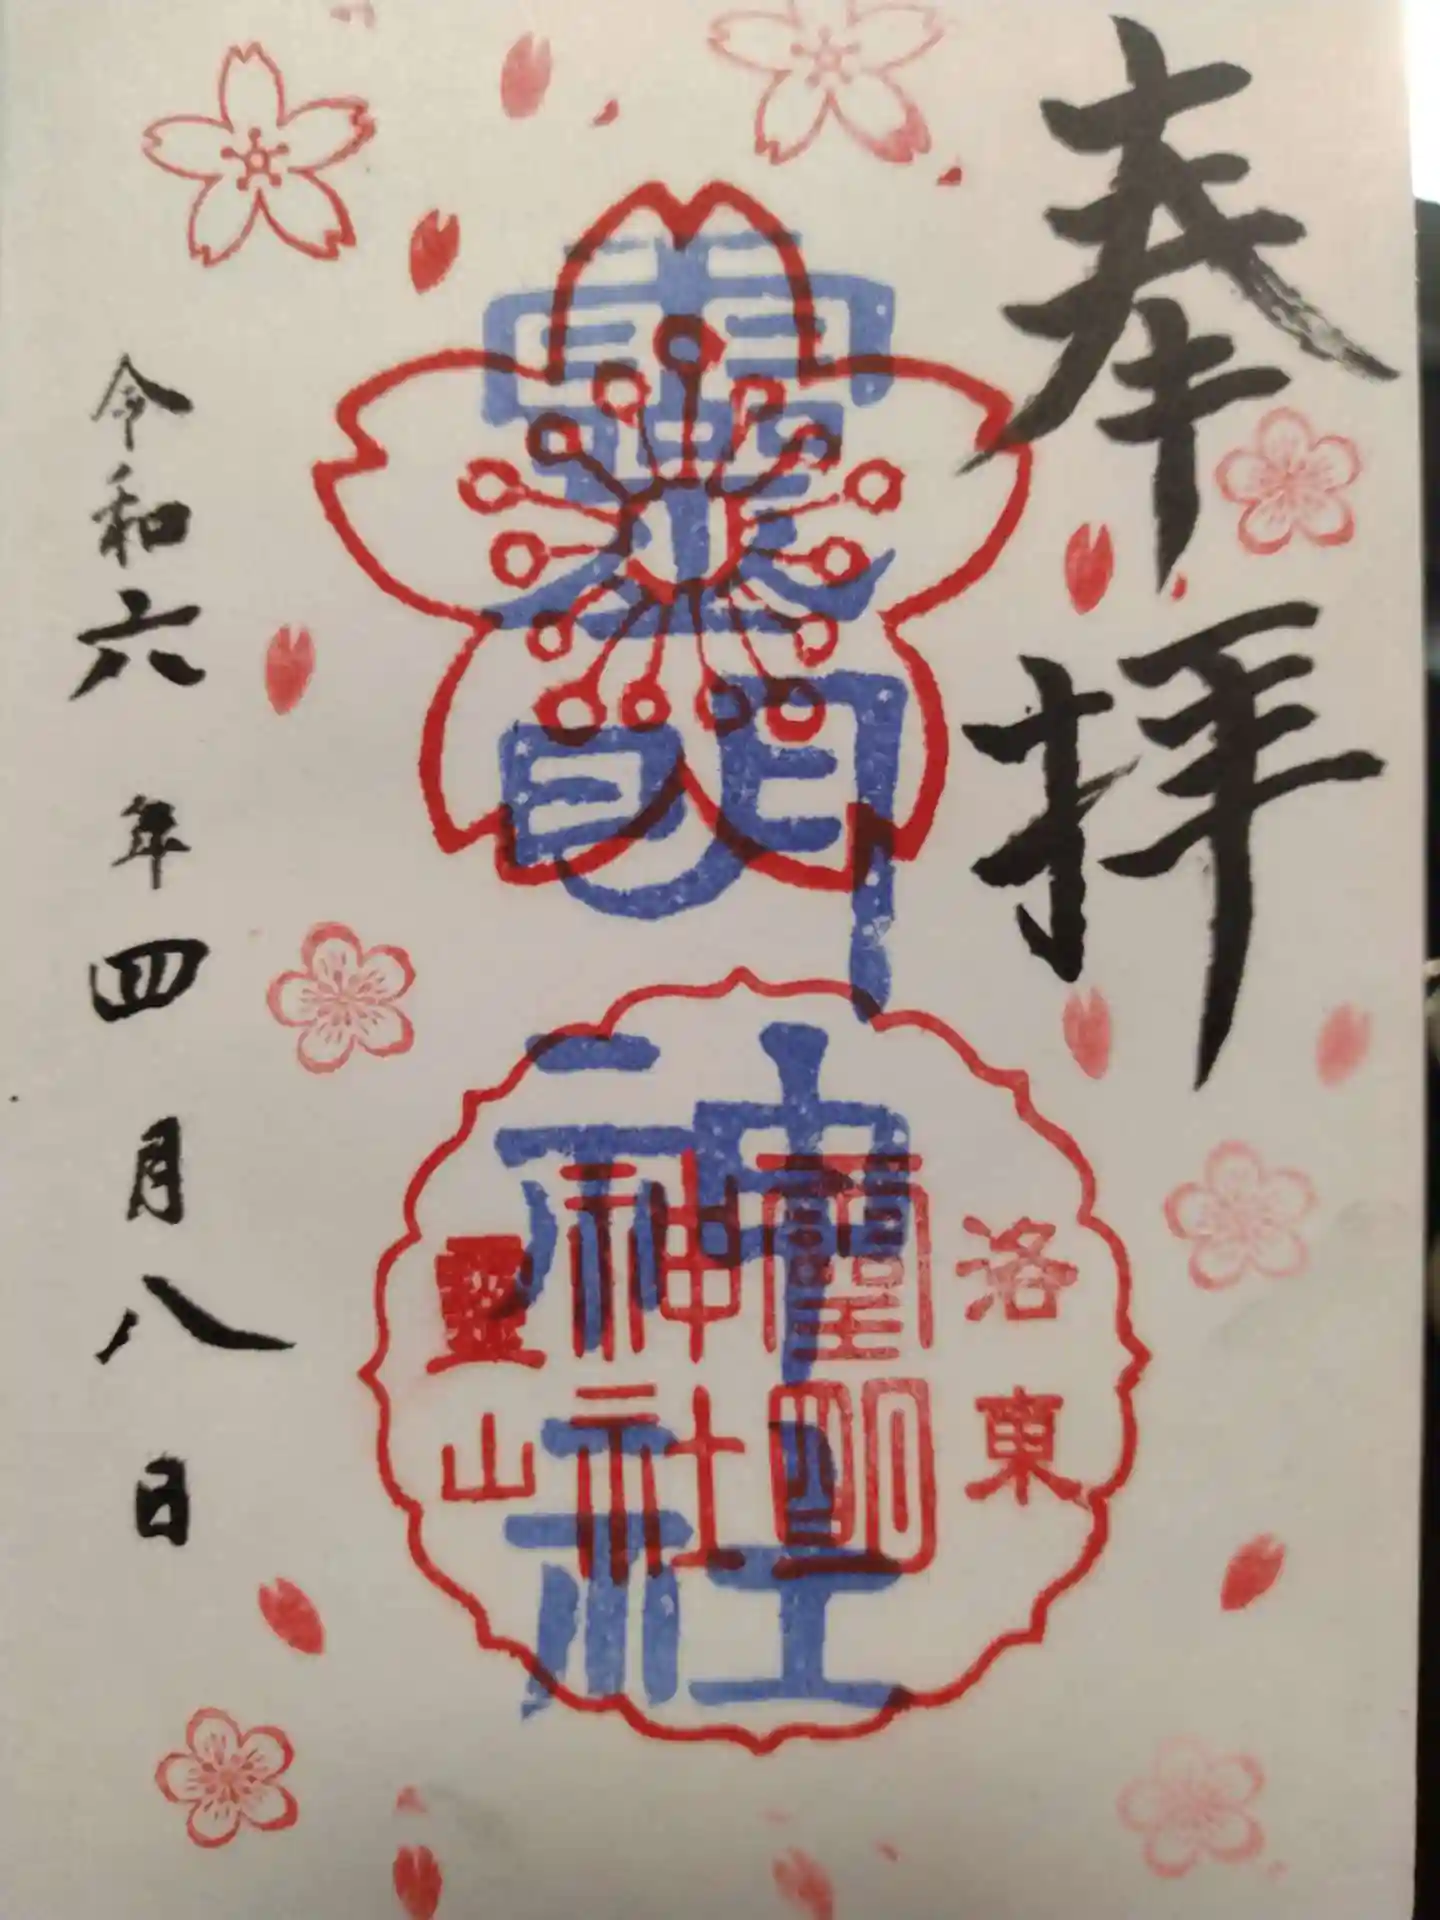 奉拝
靈明神社
洛東
靈明
神社
靈山
令和六年四月八日